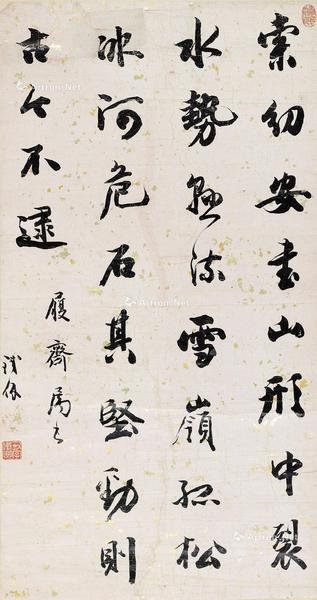 索幼安書山形中裂
水勢懸流雪嶺孤松
冰河危石其堅勁則
古今不逮
履齋屬書
鐵保